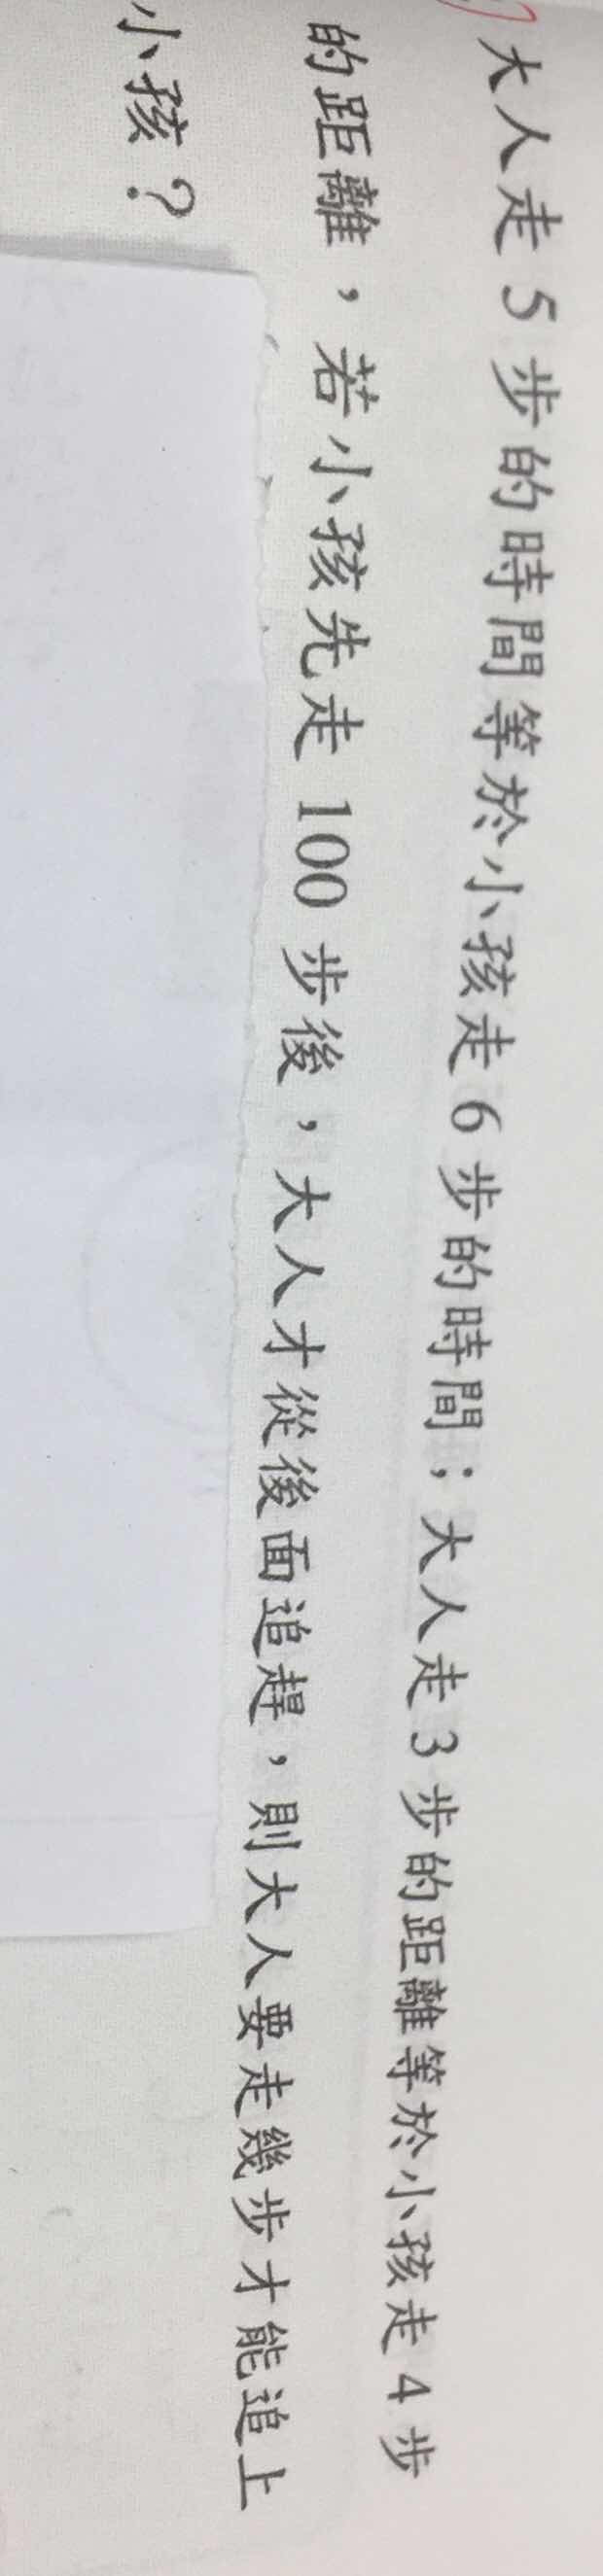 大人走 5 步的時間等於小孩走 6 步的時間；大人走 3 步的距離等於小孩走 4 步
的距離，若小孩先走 100 步後，大人才從後面追趕，則大人要走幾步才能追上
小孩？